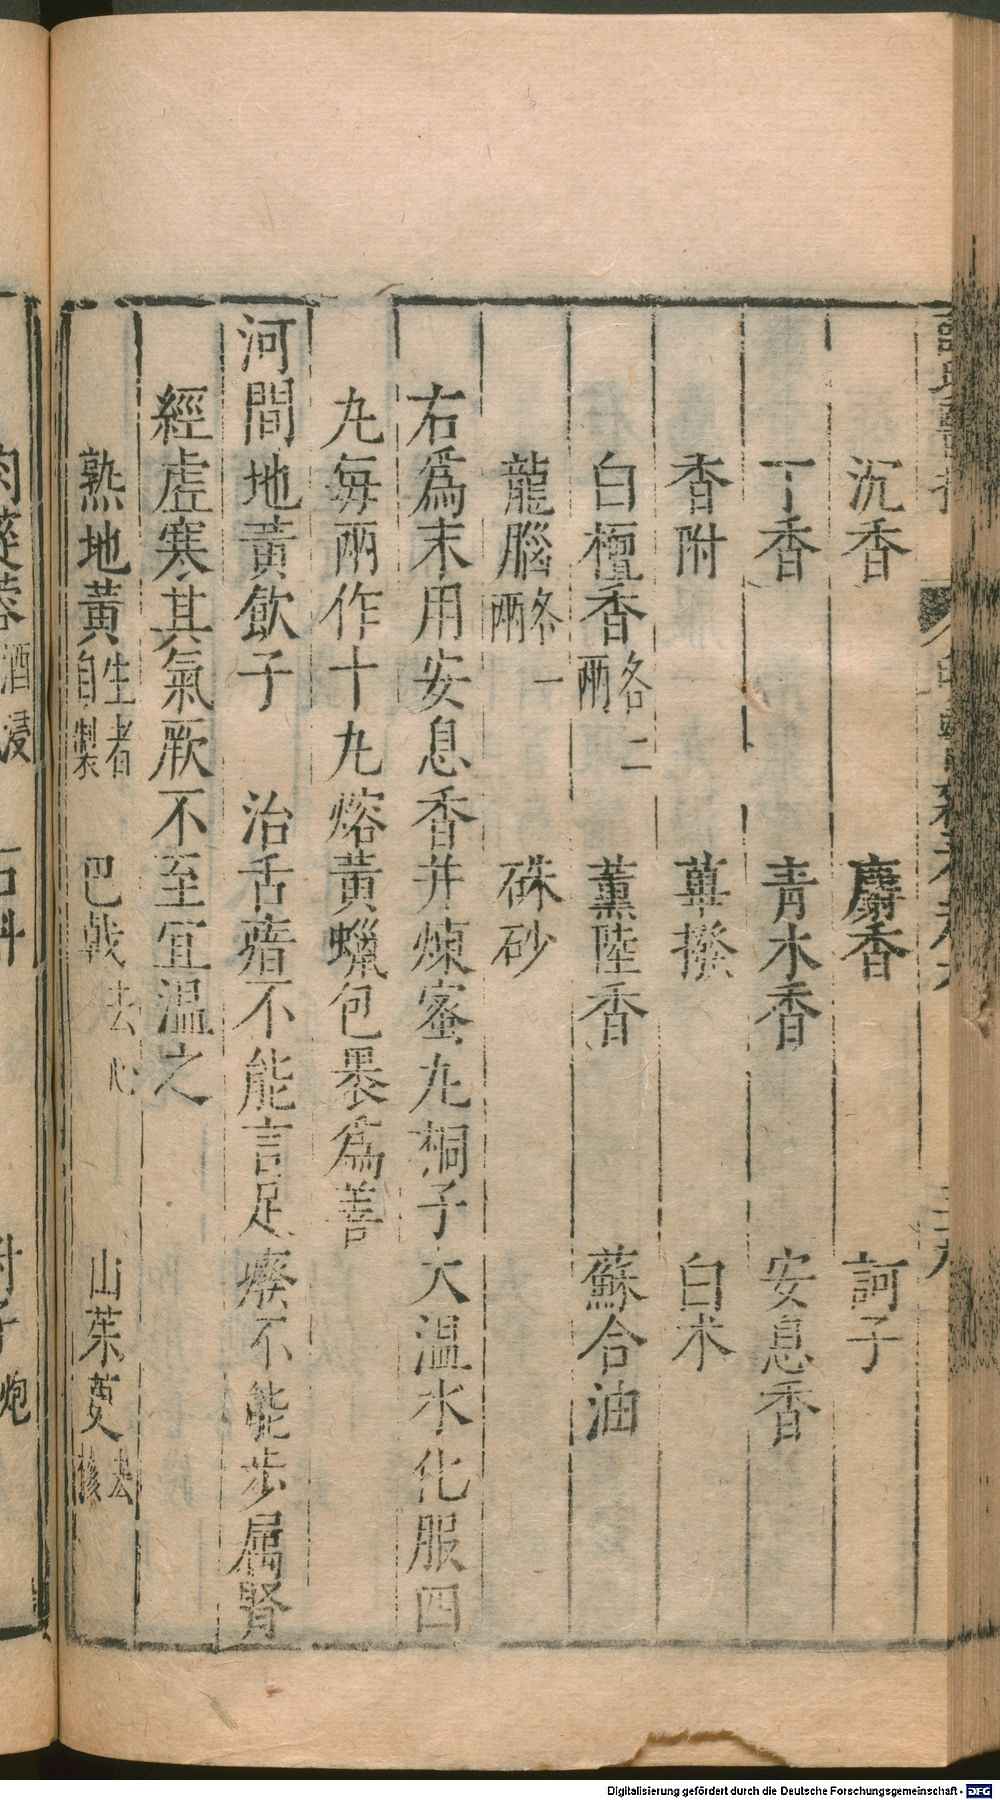 沉香　麝香　訶子
丁香　青木香　安息香
香附　蓽撥　白术
白檀香各二兩　薰陸香　蘇合油
龍腦各一兩　硃砂
右爲末用安息香并煉蜜丸桐子大温水化服四
丸每兩作十丸熔黃蠟包褁爲善
河間地黃飲子　治舌瘖不能言足𤸷不能步屬腎
經虛寒其氣厥不至宜温之
熟地黃生者自製　巴戟去心　山茱萸去核
肉蓯蓉酒浸　石斛　附子炮
Digitalisierung gefördert durch die Deutsche Forschungsgemeinschaft - DFG